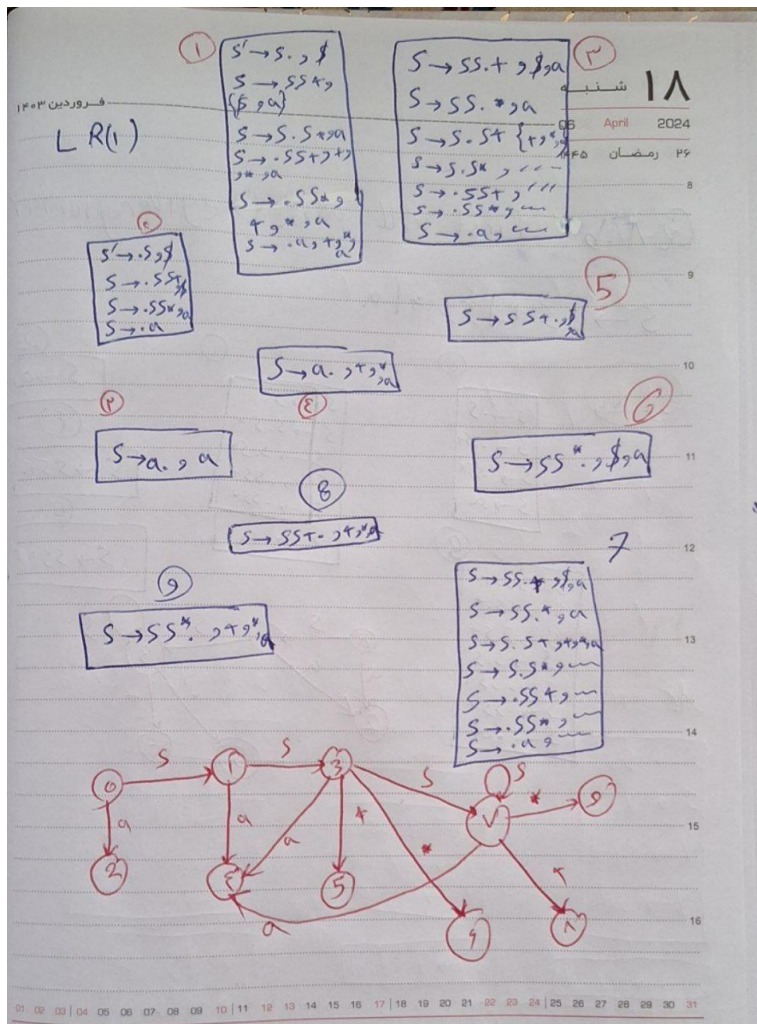 فروردین ۱۴۰۳
LR(1)
۱۸
شنبه
06 April 2024
۲۶ رمضان ۱۴۴۵
①
S' → S. , $
S → SS+,
{$ , a}
S → S.S*,a
S → .SS+,+,
,*,a
S → .SS*,
+,*,a
S → .a,+,*,
a
۳
S → SS.+ ,$,a
S → SS.*,a
S → S.S+ {+,*,a
S → S.S*, ,,,
S → .SS+, ,,,
S → .SS*,
S → .a,
S' → .S,$
S → .SS+,$
S → .SS*,a
S → .a
5
S → SS+.,$
,a
S → a. ,+,*
,a
٤
۲
S → a. , a
6
S → SS*. ,$,a
8
S → SS+. ,+,*,a
9
S → SS*. ,+,*,a
7
S → SS.+,$,a
S → SS.*,a
S → S.S+,+,*,a
S → S.S*,
S → .SS+,
S → .SS*,
S → .a,
0 S 1 S 3 S ۷ S * 9
a a a + * +
2 ٤ 5 ۶ ۸
a
8
9
10
11
12
13
14
15
16
01 02 03 | 04 05 06 07 08 09 10 | 11 12 13 14 15 16 17 | 18 19 20 21 22 23 24 | 25 26 27 28 29 30 31